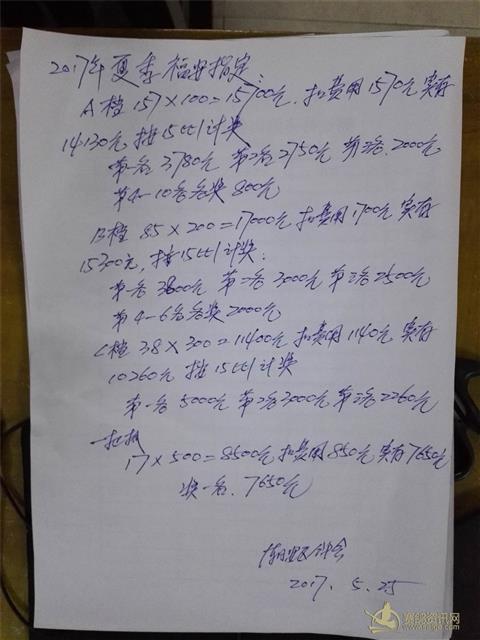 2017年夏季福州指定:
A档 157×100=15700元, 扣费用1570元实有
14130元, 按15比1计奖
第一名 3780元 第二名 2750元 第三名. 2000元
第4-10名各奖 800元
B档 85×200=17000元 扣费用1700元 实有
15300元, 按15比1计奖.
第一名 3800元 第二名 3000元 第三名 2500元
第4-6名各奖2000元
C档 38×300=11400元 扣费用1140元 实有
10260元 按15比1计奖
第一名 5000元 第2名3000元 第三名2260元
17×500=8500元 扣费用850元 实有7650元
奖一名. 7650元
2017. 5. 25
赛鸽资讯网